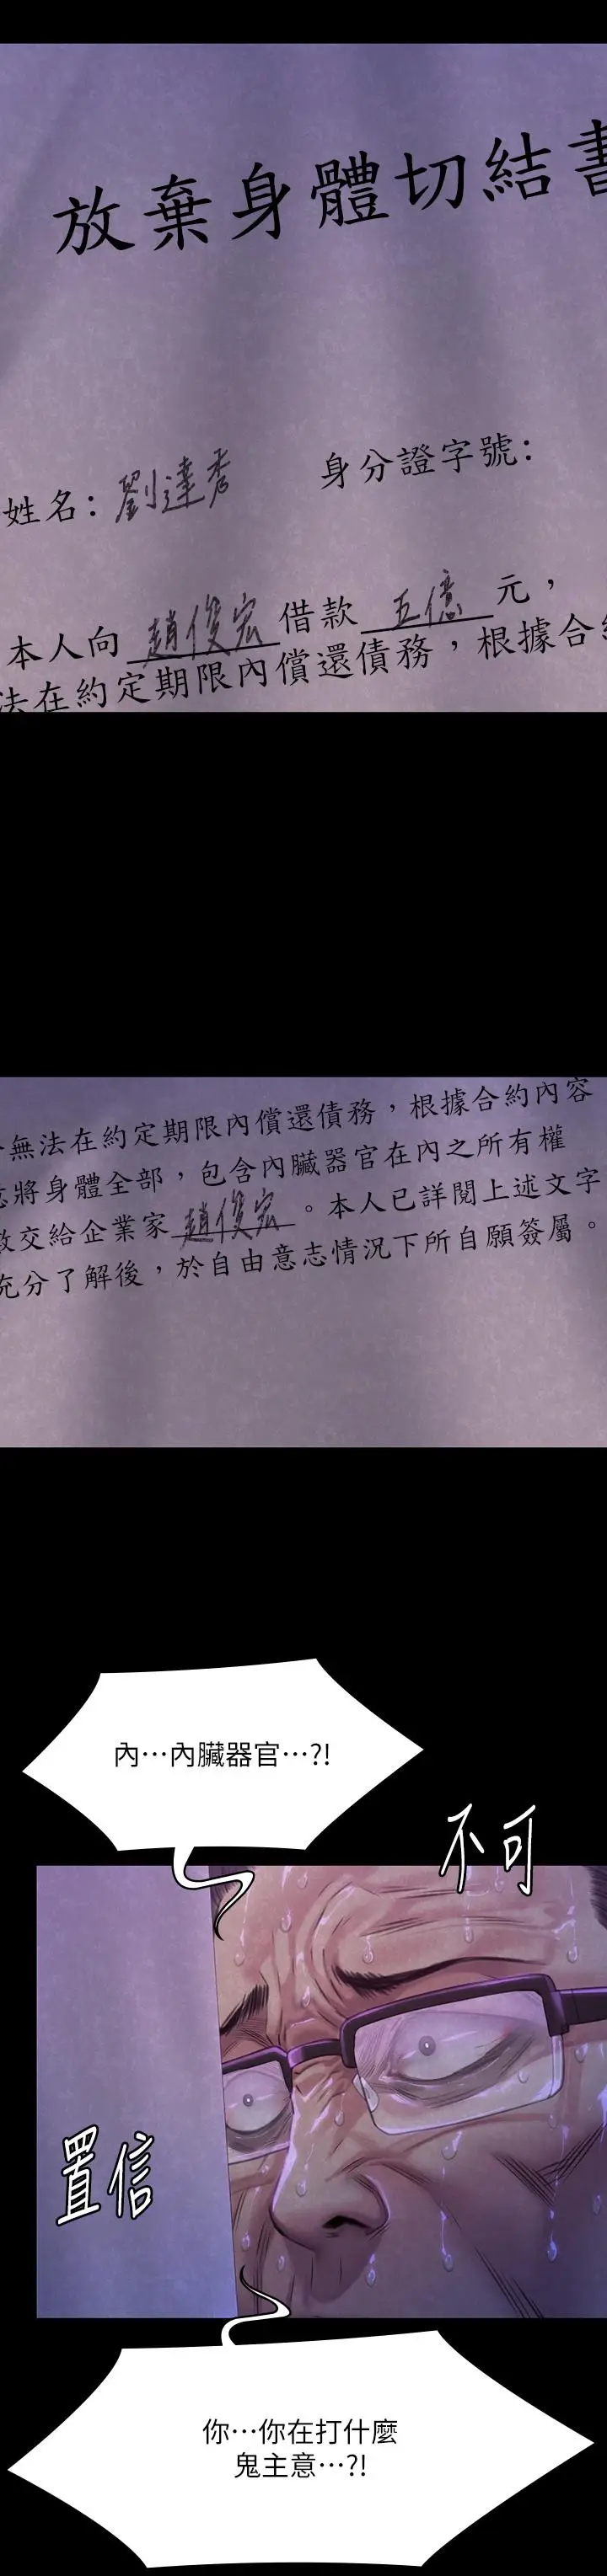 放棄身體切結書
姓名：劉達秀 身分證字號：
本人向趙俊宏借款五億元，
法在約定期限內償還債務，根據合約
無法在約定期限內償還債務，根據合約內容
將身體全部，包含內臟器官在內之所有權
交給企業家趙俊宏。本人已詳閱上述文字
充分了解後，於自由意志情況下所自願簽屬。
內…內臟器官…?!
不可
置信
你…你在打什麼
鬼主意…?!